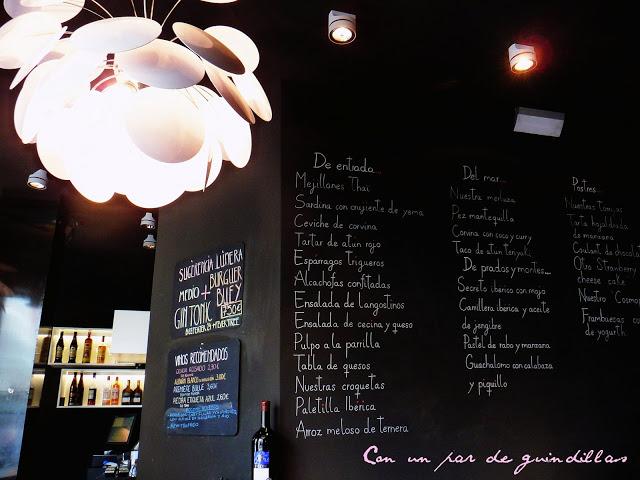 De entrada...
Mejillones Thai
Sardina con crujiente de yema
Ceviche de corvina
Tartar de atun rojo
Espárragos Trigueros
Alcachofas confitadas
Ensalada de langostinos
Ensalada de cecina y queso
Pulpo a la parrilla
Tabla de quesos
Nuestras croquetas
Paletilla Ibérica
Arroz meloso de ternera
Del mar...
Nuestra merluza
Pez mantequilla
Corvina con coco y curry
Taco de atun teriyaki
De prados y montes...
Secreto ibérico con mojo
Carrillera ibérica y aceite
de jengibre
Pastel de rabo y manzana
Guachalomo con calabaza
y piquillo
Postres...
Nuestras Torrijas
Tarta hojaldrada
de manzana
Coulant de chocola
Otro Strawberry
cheese cake
Nuestro Cosmo
Frambuesas con
de yogurth
SUGERENCIA LÚMERA
MEDIO + BURGUER
GIN TONIC BUEY
VINOS RECOMENDADOS
Con un par de guindillas